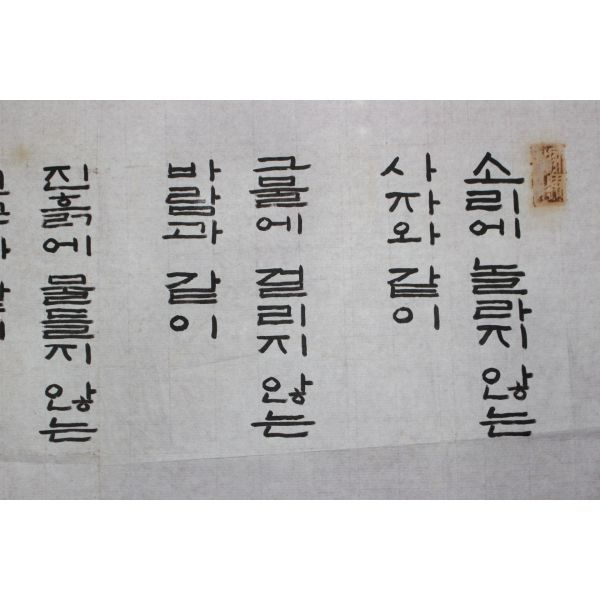 소리에 놀라지 않는
사자와 같이
그물에 걸리지 않는
바람과 같이
진흙에 물들지 않는